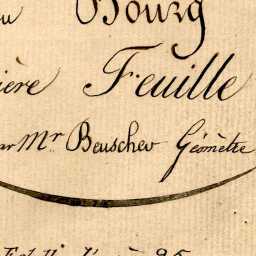 du Bourg
ière Feuille
par Mr Beuscher Géomètre